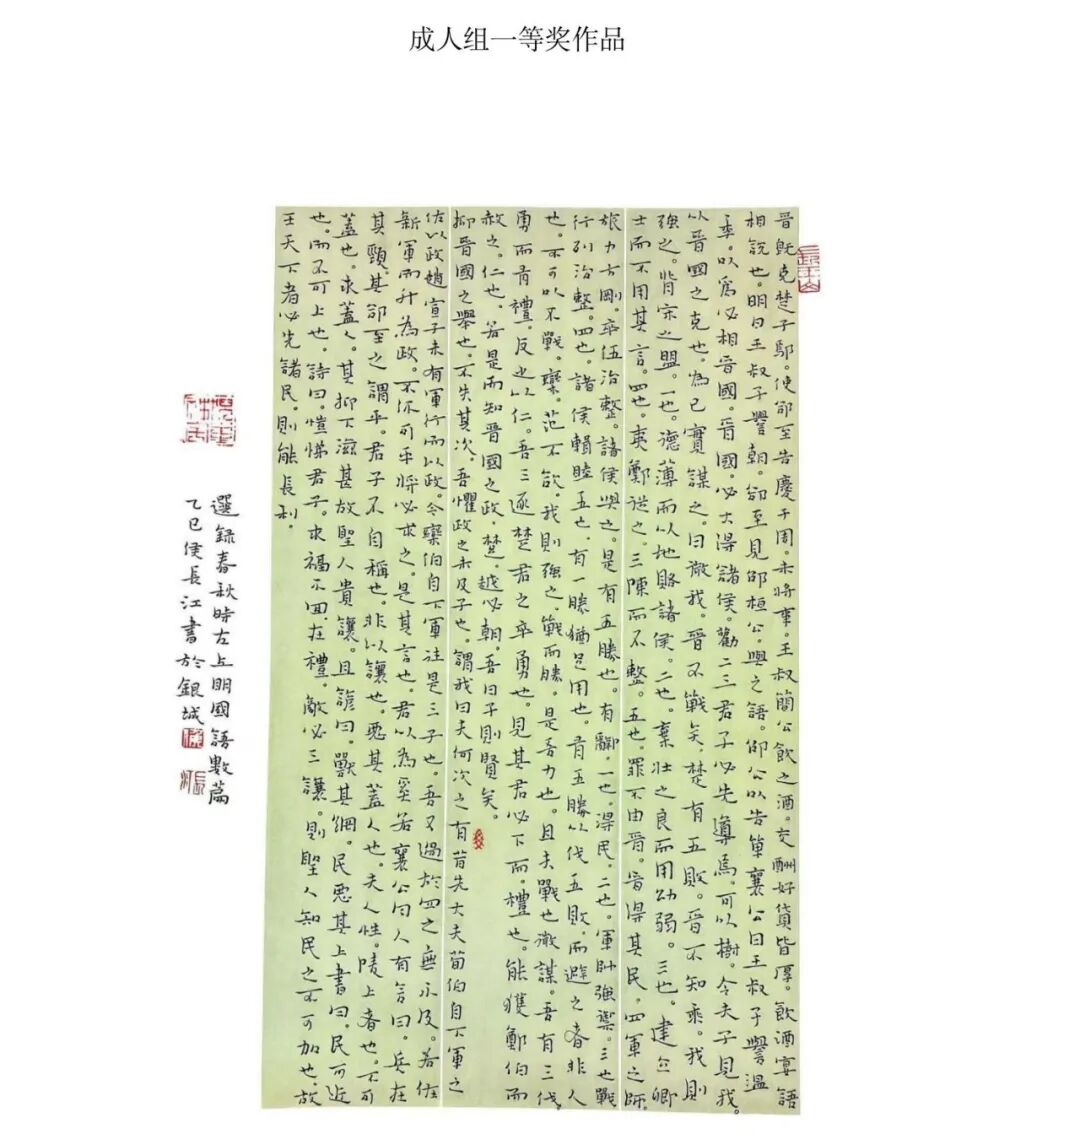 成人组一等奖作品
晋既克楚于鄢。使郤至告慶于周。未將事。王叔簡公飲之酒。交酬好貨皆厚。飲酒宴語
相說也。明日王叔子譽朝。郤至見邵桓公。與之語。邵公以告單襄公曰王叔子譽溫
季。以爲必相晉國。晉國。必大得諸侯。勸二三君子必先導焉。可以樹。今夫子見我。
以晉國之克也。為己實謀之。曰微我。晉不戰矣。楚有五敗。晉不知乘。我則
強之。背宋之盟。一也。德薄而以地賂諸侯。二也。棄壯之良而用幼弱。三也。建立卿
士而不用其言。四也。夷鄭從之。三陳而不整。五也。罪不由晉。晉得其民。四軍之師。
旅力方剛。卒伍治整。諸侯與之。是有五勝也。有辭。一也。得民。二也。軍帥強禦。三也戰
行列治整。四也。諸侯輯睦五也。有一勝猶足用也。有五勝以伐五敗。而避之者非人
也。不可以不戰。欒。范不欲。我則強之。戰而勝。是吾力也。且夫戰也微謀。吾有三伐。
勇而有禮。反之以仁。吾三逐楚君之卒勇也。見其君必下而。禮也。能獲鄭伯而
赦之。仁也。若是而知晉國之政。楚。越必朝。吾曰子則賢矣。
抑晉國之舉也。不失其次。吾懼政之未及子也。謂我曰夫何次之有昔先大夫荀伯自下軍之
佐以政趙宣子未有軍行而以政。今欒伯自下軍往是三子也。吾又過於四之無不及。若佐
新軍而升為政。不亦可乎將必求之。是其言也。君以為奚若襄公曰人有言曰。兵在
其頸。其郤至之謂乎。君子不自稱也。非以讓也。惡其蓋人也。夫人性。陵上者也。不可
蓋也。求蓋人。其抑下滋甚故聖人貴讓。且諺曰。獸其網。民惡其上書曰。民可近
也。而不可上也。詩曰。愷悌君子。求福不回。在禮。敵必三讓。則聖人知民之不可加也。故
王天下者必先諸民。則能長利。
選録春秋時左丘明國語數篇
乙巳侯長江書於銀城